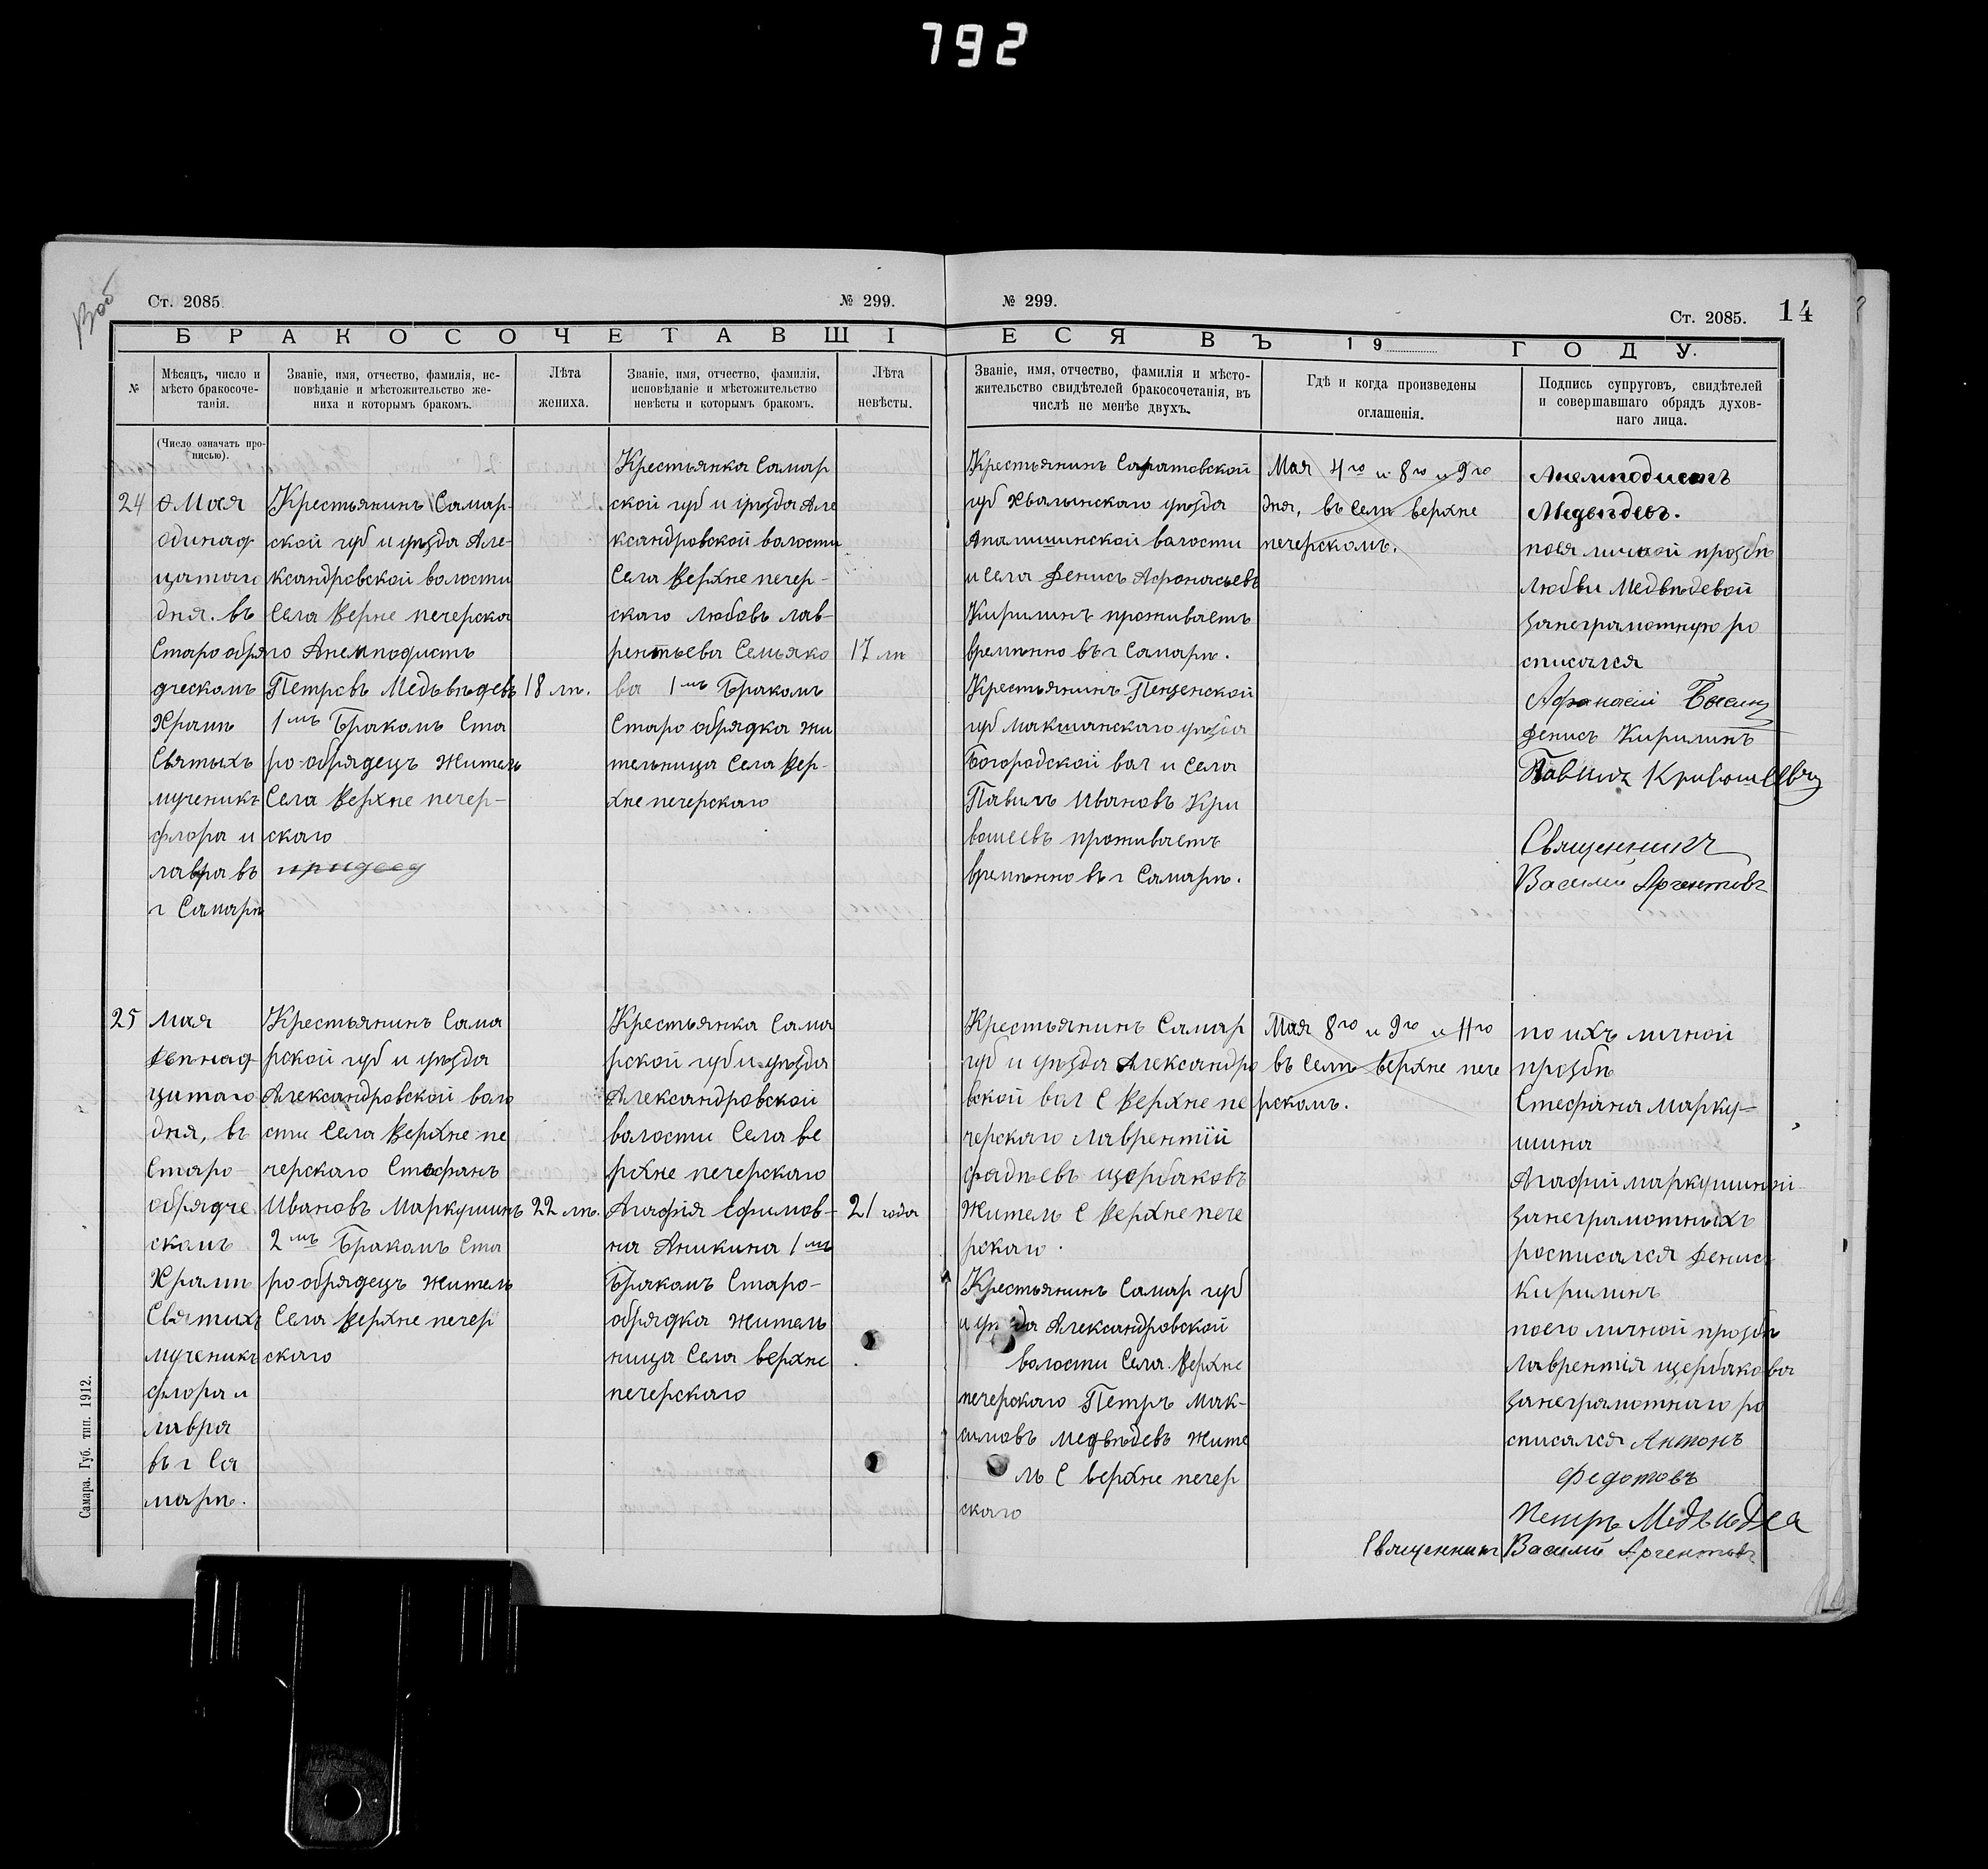 792
Ст. 2085.
№ 299.
№ 299.
Ст. 2085.
14
БРАКОСОЧЕТАВШІ
ЕСЯ ВЪ 19 ГОДУ.
№
Мѣсяцъ, число и
мѣсто бракосоче-
танія.
Званіе, имя, отчество, фамилія, ис-
повѣданіе и мѣстожительство же-
ниха и которымъ бракомъ.
Лѣта
жениха.
Званіе, имя, отчество, фамилія,
исповѣданіе и мѣстожительство
невѣсты и которымъ бракомъ.
Лѣта
невѣсты.
Званіе, имя, отчество, фамилія и мѣсто-
жительство свидѣтелей бракосочетанія, въ
числѣ не менѣе двухъ.
Гдѣ и когда произведены
оглашенія.
Подпись супруговъ, свидѣтелей
и совершавшаго обрядъ духов-
наго лица.
(Число означать про-
писью).
24
Мая
одинад
цатаго
дня. въ
Старообря
дческомъ
Храмѣ
Святыхъ
мученикъ
флора и
лавра въ
г Самарѣ
Крестьянинъ Самар-
ской губ и уѣзда Але-
ксандровской волости
Села Верне печерска
го Анемподистъ
Петровъ Медъвѣдевъ
1мъ Бракомъ Ста
ро-обрядецъ Житель
Села Верхне печер-
скаго
18 лѣ.
Крестьянка Самар
ской губ и уѣзда Але
ксандровской волости
Села Верхне печер-
скаго Любовь лав-
рентьева Семьяко
ва 1мъ Бракомъ
Старообрядка жи
тельница Села Вер-
хне печерскаго
17 лѣ
Крестьянинъ Саратовской
губ Хвалынскаго уѣзда
Апалишинской валости
и села Денисъ Афонасьевъ
Кирилинъ проживаетъ
временно въ г Самарѣ.
Крестьянинъ Пензенской
губ Макшанскаго уѣзда
Богородской вал и села
Павилъ Ивановъ Кри
вошеевъ проживаетъ
временно въ г Самарѣ.
Мая 4го и 8го и 9го
дня, въ селѣ верхне
печерскомъ.
Анемподистъ
Медвѣдевъ.
поея личной прозбѣ
Любви Медвѣдевой
занеграмотную ро
списался
Афонасій
Денисъ Кирилинъ
Павилъ Кривошеевъ
Священникъ
Василий Аргентовъ
25
мая
двѣнад
цатаго
дня, въ
Старо-
обрядче
скомъ
Храмѣ
Святыхъ
мученикъ
флора и
лавра
въ г Са
марѣ.
Крестьянинъ Сама
рской губ и уѣзда
Александровской воло
сти Села Верхне пе
черскаго Стефанъ
Ивановъ Маркушинъ
2мъ Бракомъ Ста
рообрядецъ Житель
Села Верхне печер
скаго
22 лѣ.
Крестьянка Сама
рской губ и уѣзда
Александровской
валости Села ве
рхне печерскаго
Агафія Ефимов-
на Аникина 1мъ
Бракомъ Старо-
обрядка житель
ница Села верхне
печерскаго
21 года
Крестьянинъ Самар
губ и уѣзда Александро
вской вал С Верхне пе
черскаго Лаврентій
фадѣевъ щербаковъ
Житель С Верхне пече
рскаго.
Крестьянинъ Самар губ
и уѣзда Александровской
валости Села Верхне
печерскаго Петръ Мак-
симовъ Медвѣдевъ жите
ль С верхне печер
скаго
Мая 8го и 9го и 11го
въ селѣ верхне пече
рскомъ.
по ихъ личной
прозбѣ
Стефана Марку-
шина
Агафии маркушиной
занеграмотныхъ
росписался Денисъ
Кирилинъ
поего личной прозбѣ
Лаврентія щербакова
занеграмотнаго ро
списался Антонъ
Федотовъ
Петръ Медвѣдев
Священникъ Василий Аргентовъ
Самара. Губ. тип. 1912.